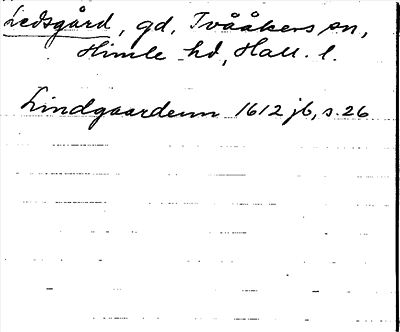 Ledsgård, gd, Tvååkers sn,
Himle hd, Hall. l.
Lindgaardenn 1612 jb, s. 26